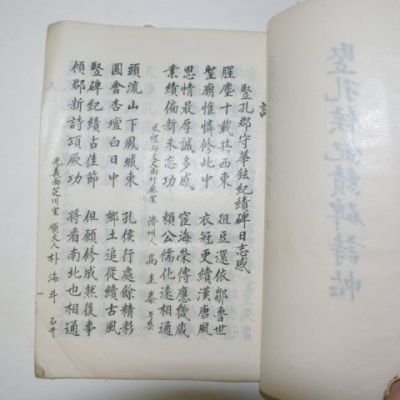 竪孔侯紀績碑詩帖
詩
竪孔郡守華鉉紀績碑日志感
腥塵十載共西東 俎豆還依鄒魯世
聖廟惟憐修此中 衣冠更續漢唐風
恩情最厚誠多感 宦海榮傳應幾歲
業績偏新未忘功 賴公儒化遠相通
求禮郡文尺面竹麻里 濟州人 高圭泰
頭流山下鳳城東 孔侯行處餘精影
圓會杏壇白日中 鄉土追從續古風
竪碑紀績古佳節 但願修成然後事
傾郡新詩頌厥功 將看南北也相通
光義面芝川里 順天人 朴海斗 石井